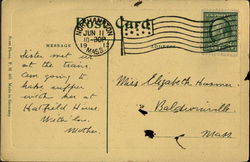 Post Card
NORTHAMPTON
JUN 11
10-30P
1912
MASS.
MESSAGE
ADDRESS
Sister met us
at the train.
Am going to
take supper
with her at
Hatfield House
With love.
Mother.
Miss Elizabeth
Baldwinville
Mass